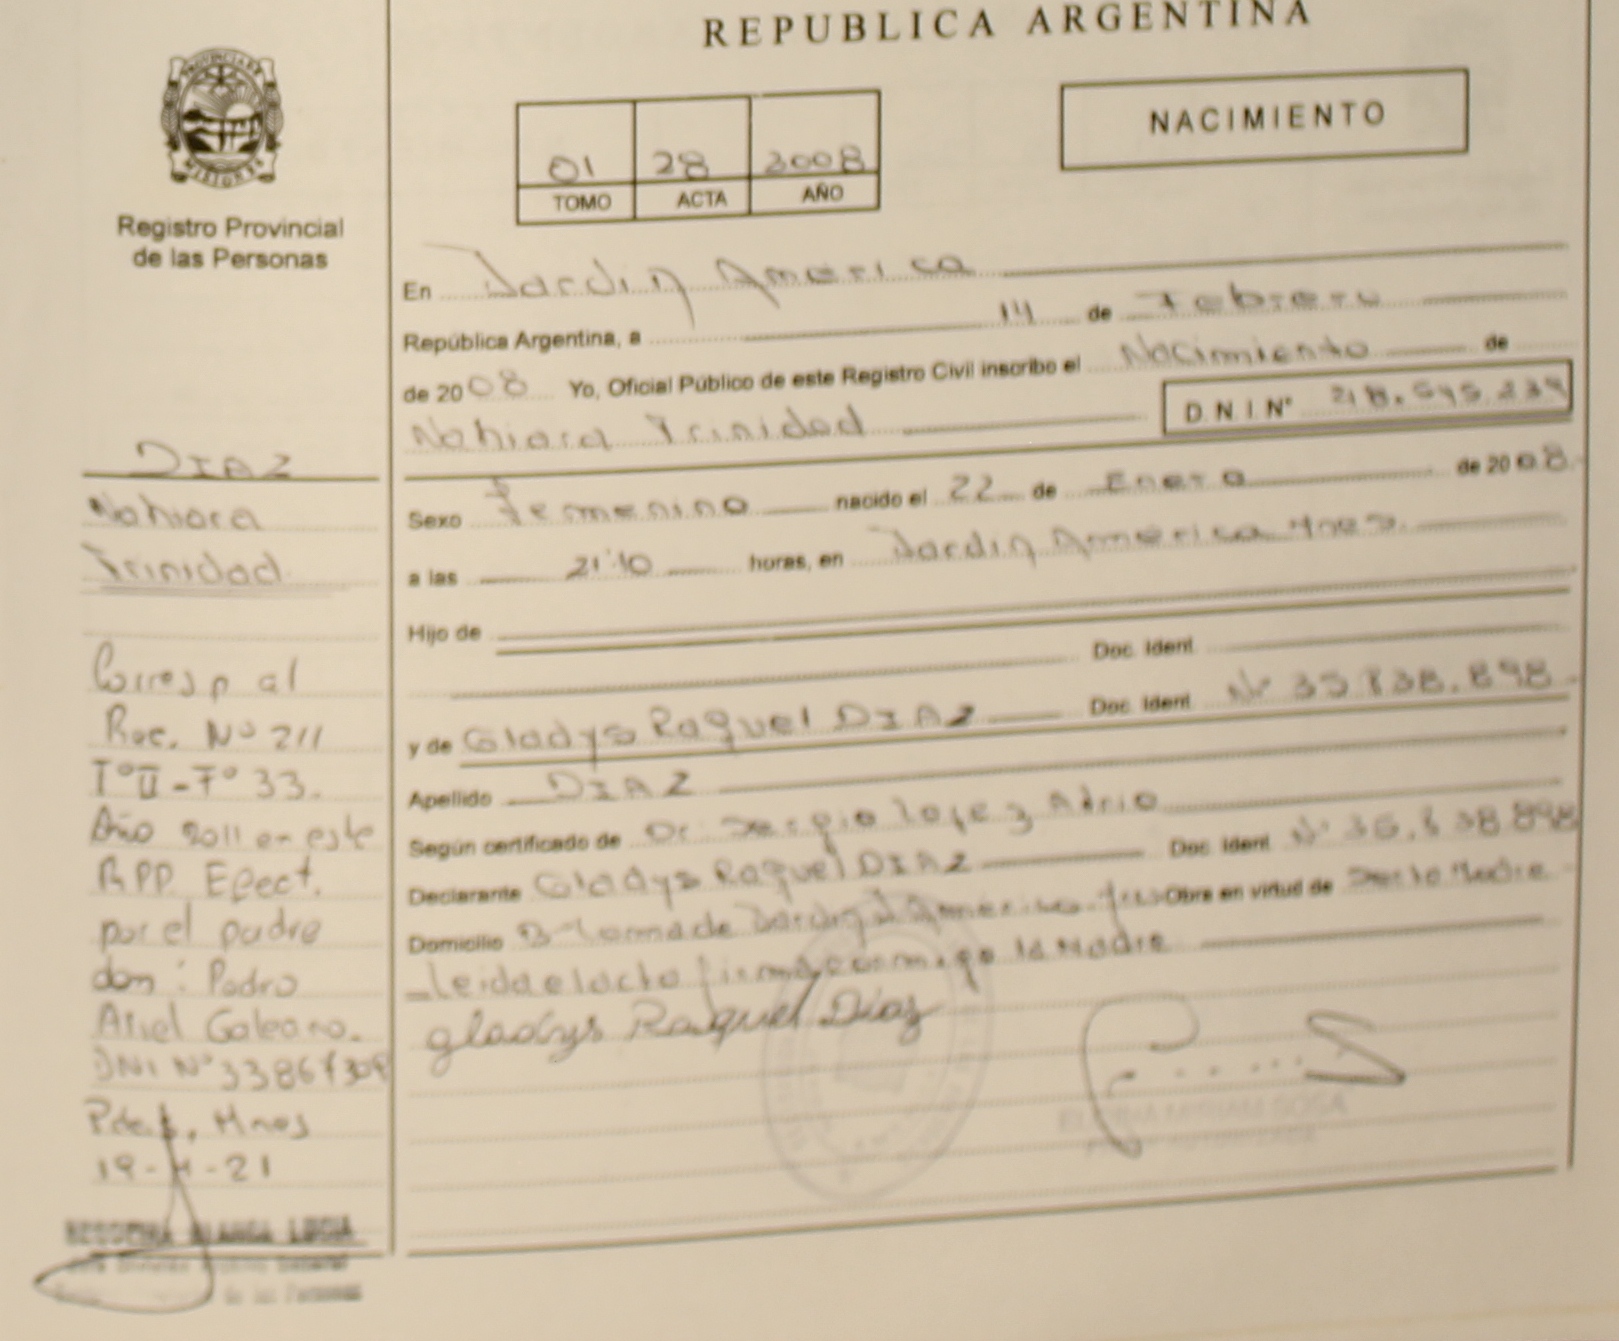 REPUBLICA ARGENTINA
PROVINCIA DE
MISIONES
Registro Provincial
de las Personas
01 28 2008
TOMO ACTA AÑO
NACIMIENTO
En Jardin America
República Argentina, a 14 de Febrero
de 2008 Yo, Oficial Público de este Registro Civil inscribo el Nacimiento de
Nahiara Trinidad D.N.I.Nº
Sexo Femenino nacido el 22 de Enero de 2008
a las 21:10 horas, en Jardin America Mnes.
Hijo de
Doc. Ident.
y de Gladys Raquel DIAZ Doc. Ident. Nº 35.838.898
Apellido DIAZ
Según certificado de Dr. Sergio Lopez
Declarante Gladys Raquel DIAZ Doc. Ident. Nº
Domicilio Obra en virtud de ser la Madre
Leida el acta firma conmigo la Madre
gladys Raquel Diaz
DIAZ
Nahiara
Trinidad
Corresp al
Rec. Nº 211
TºII - Fº 33.
Año 2011 en este
RPP. Efect.
por el padre
don: Pedro
Ariel Galeano.
DNI Nº
Pdas, Mnes
19- -21
BLANCA LUCIA
de las Personas
MIRIAM SOSA